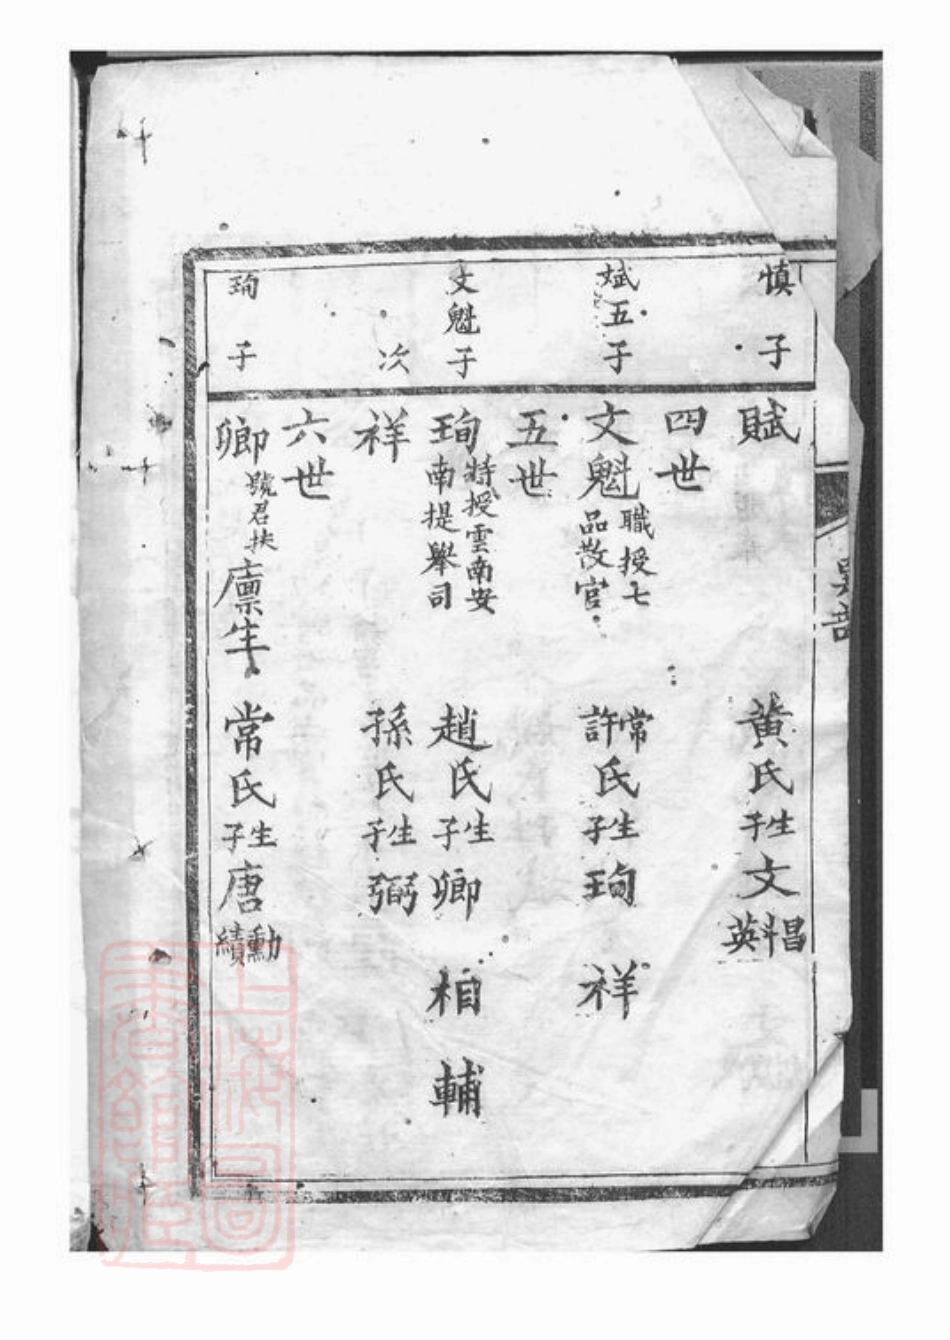 慎子
賦 黃氏生子文昌科英
四世
斌五子
文魁 職授七品散官 常許氏生子珣 祥
五世
文魁子
珣 特授雲南安南提舉司 趙氏生子卿 相 輔
次
祥 孫氏生子弼
六世
珣子
卿 號君扶 廩生 常氏生子唐勳績
上海圖書館藏